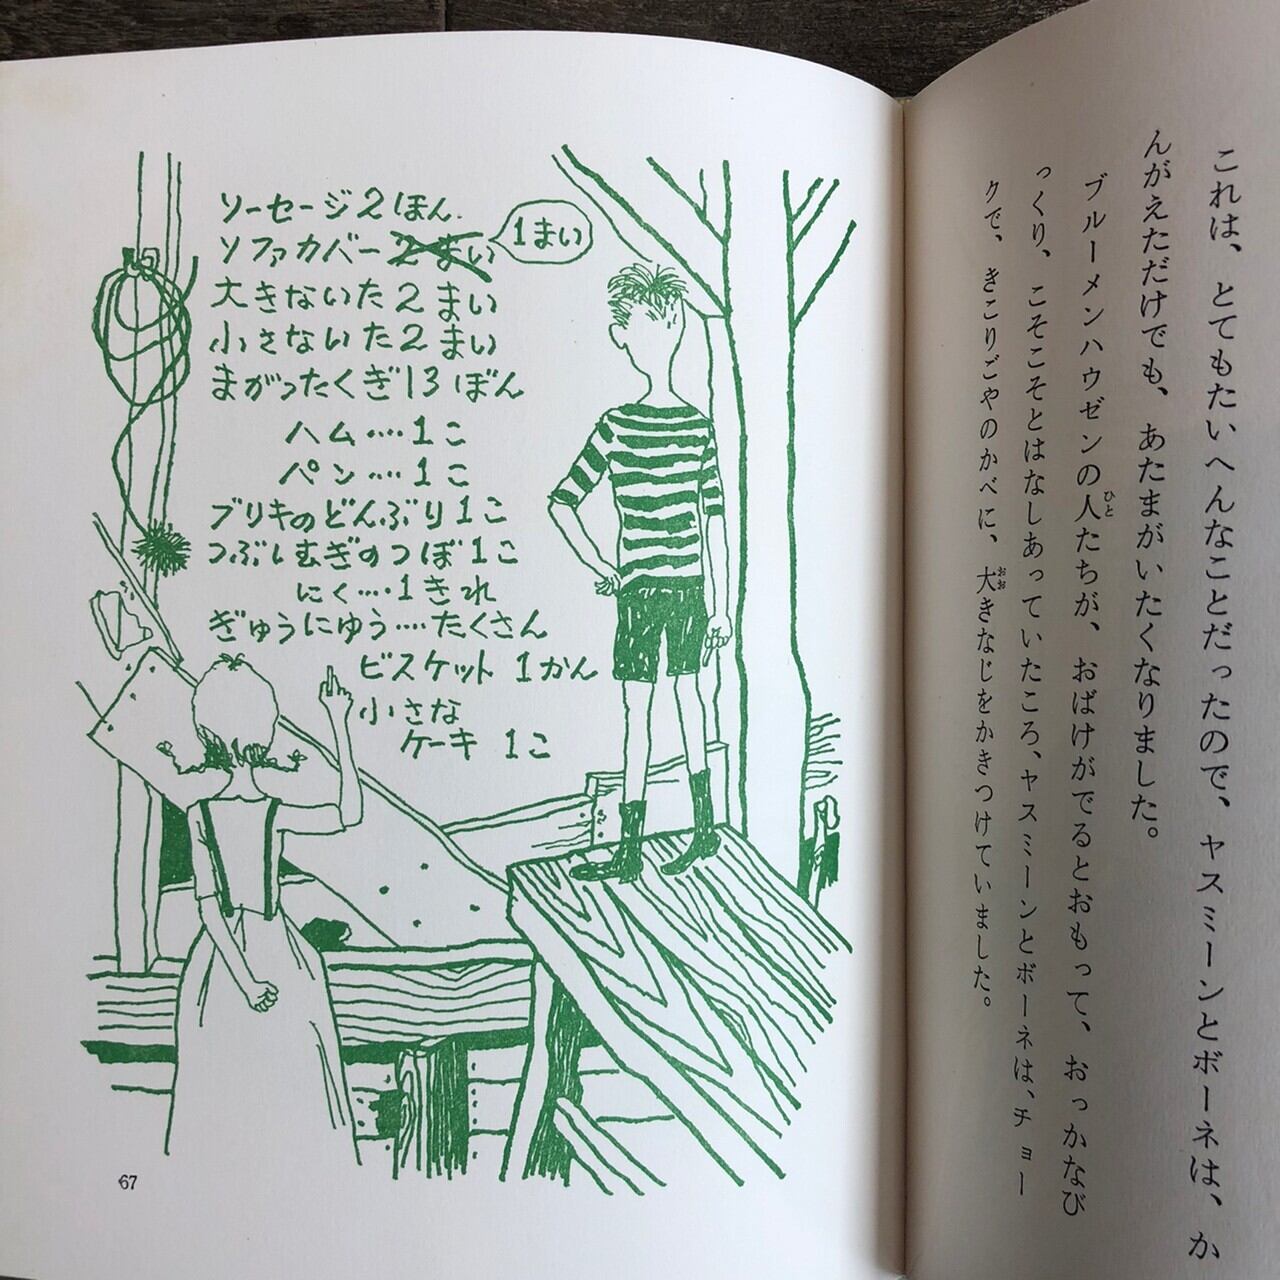 これは、とてもたいへんなことだったので、ヤスミーンとボーネは、か
んがえただけでも、あたまがいたくなりました。
ブルーメンハウゼンの人たちが、おばけがでるとおもって、おっかなび
っくり、こそこそとはなしあっていたころ、ヤスミーンとボーネは、チョー
クで、きこりごやのかべに、大きなじをかきつけていました。
ソーセージ2ほん
ソファカバー2まい 1まい
大きないた2まい
小さないた2まい
まがったくぎ13ぼん
ハム‥‥1こ
パン‥‥1こ
ブリキのどんぶり1こ
つぶしむぎのつぼ1こ
にく‥‥1きれ
ぎゅうにゅう‥‥たくさん
ビスケット 1かん
小さな
ケーキ 1こ
67